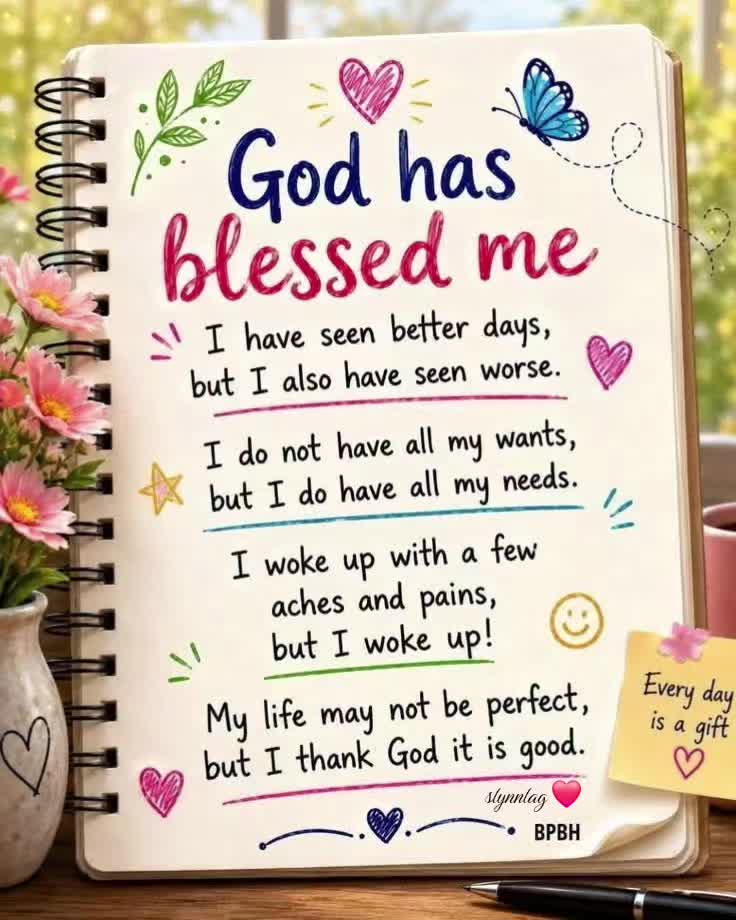 God has
blessed me
I have seen better days,
but I also have seen worse.
I do not have all my wants,
but I do have all my needs.
I woke up with a few
aches and pains,
but I woke up!
My life may not be perfect,
but I thank God it is good.
slynnlag
BPBH
Every day
is a gift